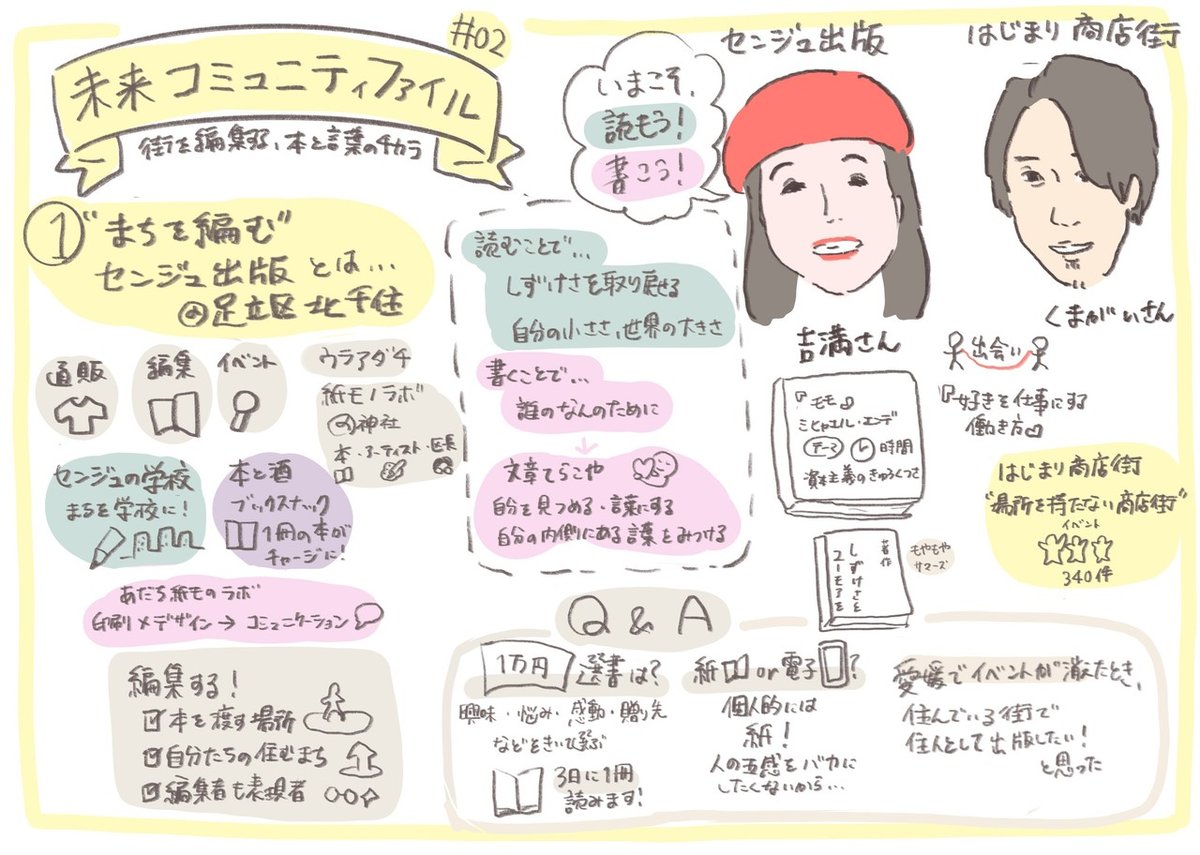 #02
未来コミュニティファイル
街を編集する、本と言葉のチカラ
いまこそ、
読もう!
書こう!
センジュ出版
はじまり商店街
吉満さん
くまがいさん
① "まちを編む"
センジュ出版とは…
@足立区北千住
通販
編集
イベント
ウラアダチ
紙モノラボ
@神社
本・アーティスト・区長
センジュの学校
まちを学校に!
本と酒
ブックスナック
1冊の本が
チャージに!
あだち紙ものラボ
印刷×デザイン→コミュニケーション
編集する!
本を渡す場所
自分たちの住むまち
編集者も表現者
読むことで…
しずけさを取り戻せる
自分の小ささ、世界の大きさ
書くことで…
誰のなんのために
文章てらこや
自分を見つめる・言葉にする
自分の内側にある言葉をみつける
『モモ』
ミヒャエル・エンデ
テーマ 時間
資本主義のきゅうくつさ
著作
しずけさと
ユーモアを
もやもや
サマーズ
出会い
『好きを仕事にする
働き方』
はじまり商店街
"場所を持たない商店街"
イベント
340件
Q & A
1万円選書は?
興味・悩み・感動・贈り先
などをきいて選ぶ
3日に1冊
読みます!
紙 or 電子?
個人的には
紙!
人の五感をバカに
したくないから…
愛媛でイベントが消えたとき、
住んでいる街で
住人として出版したい!
と思った